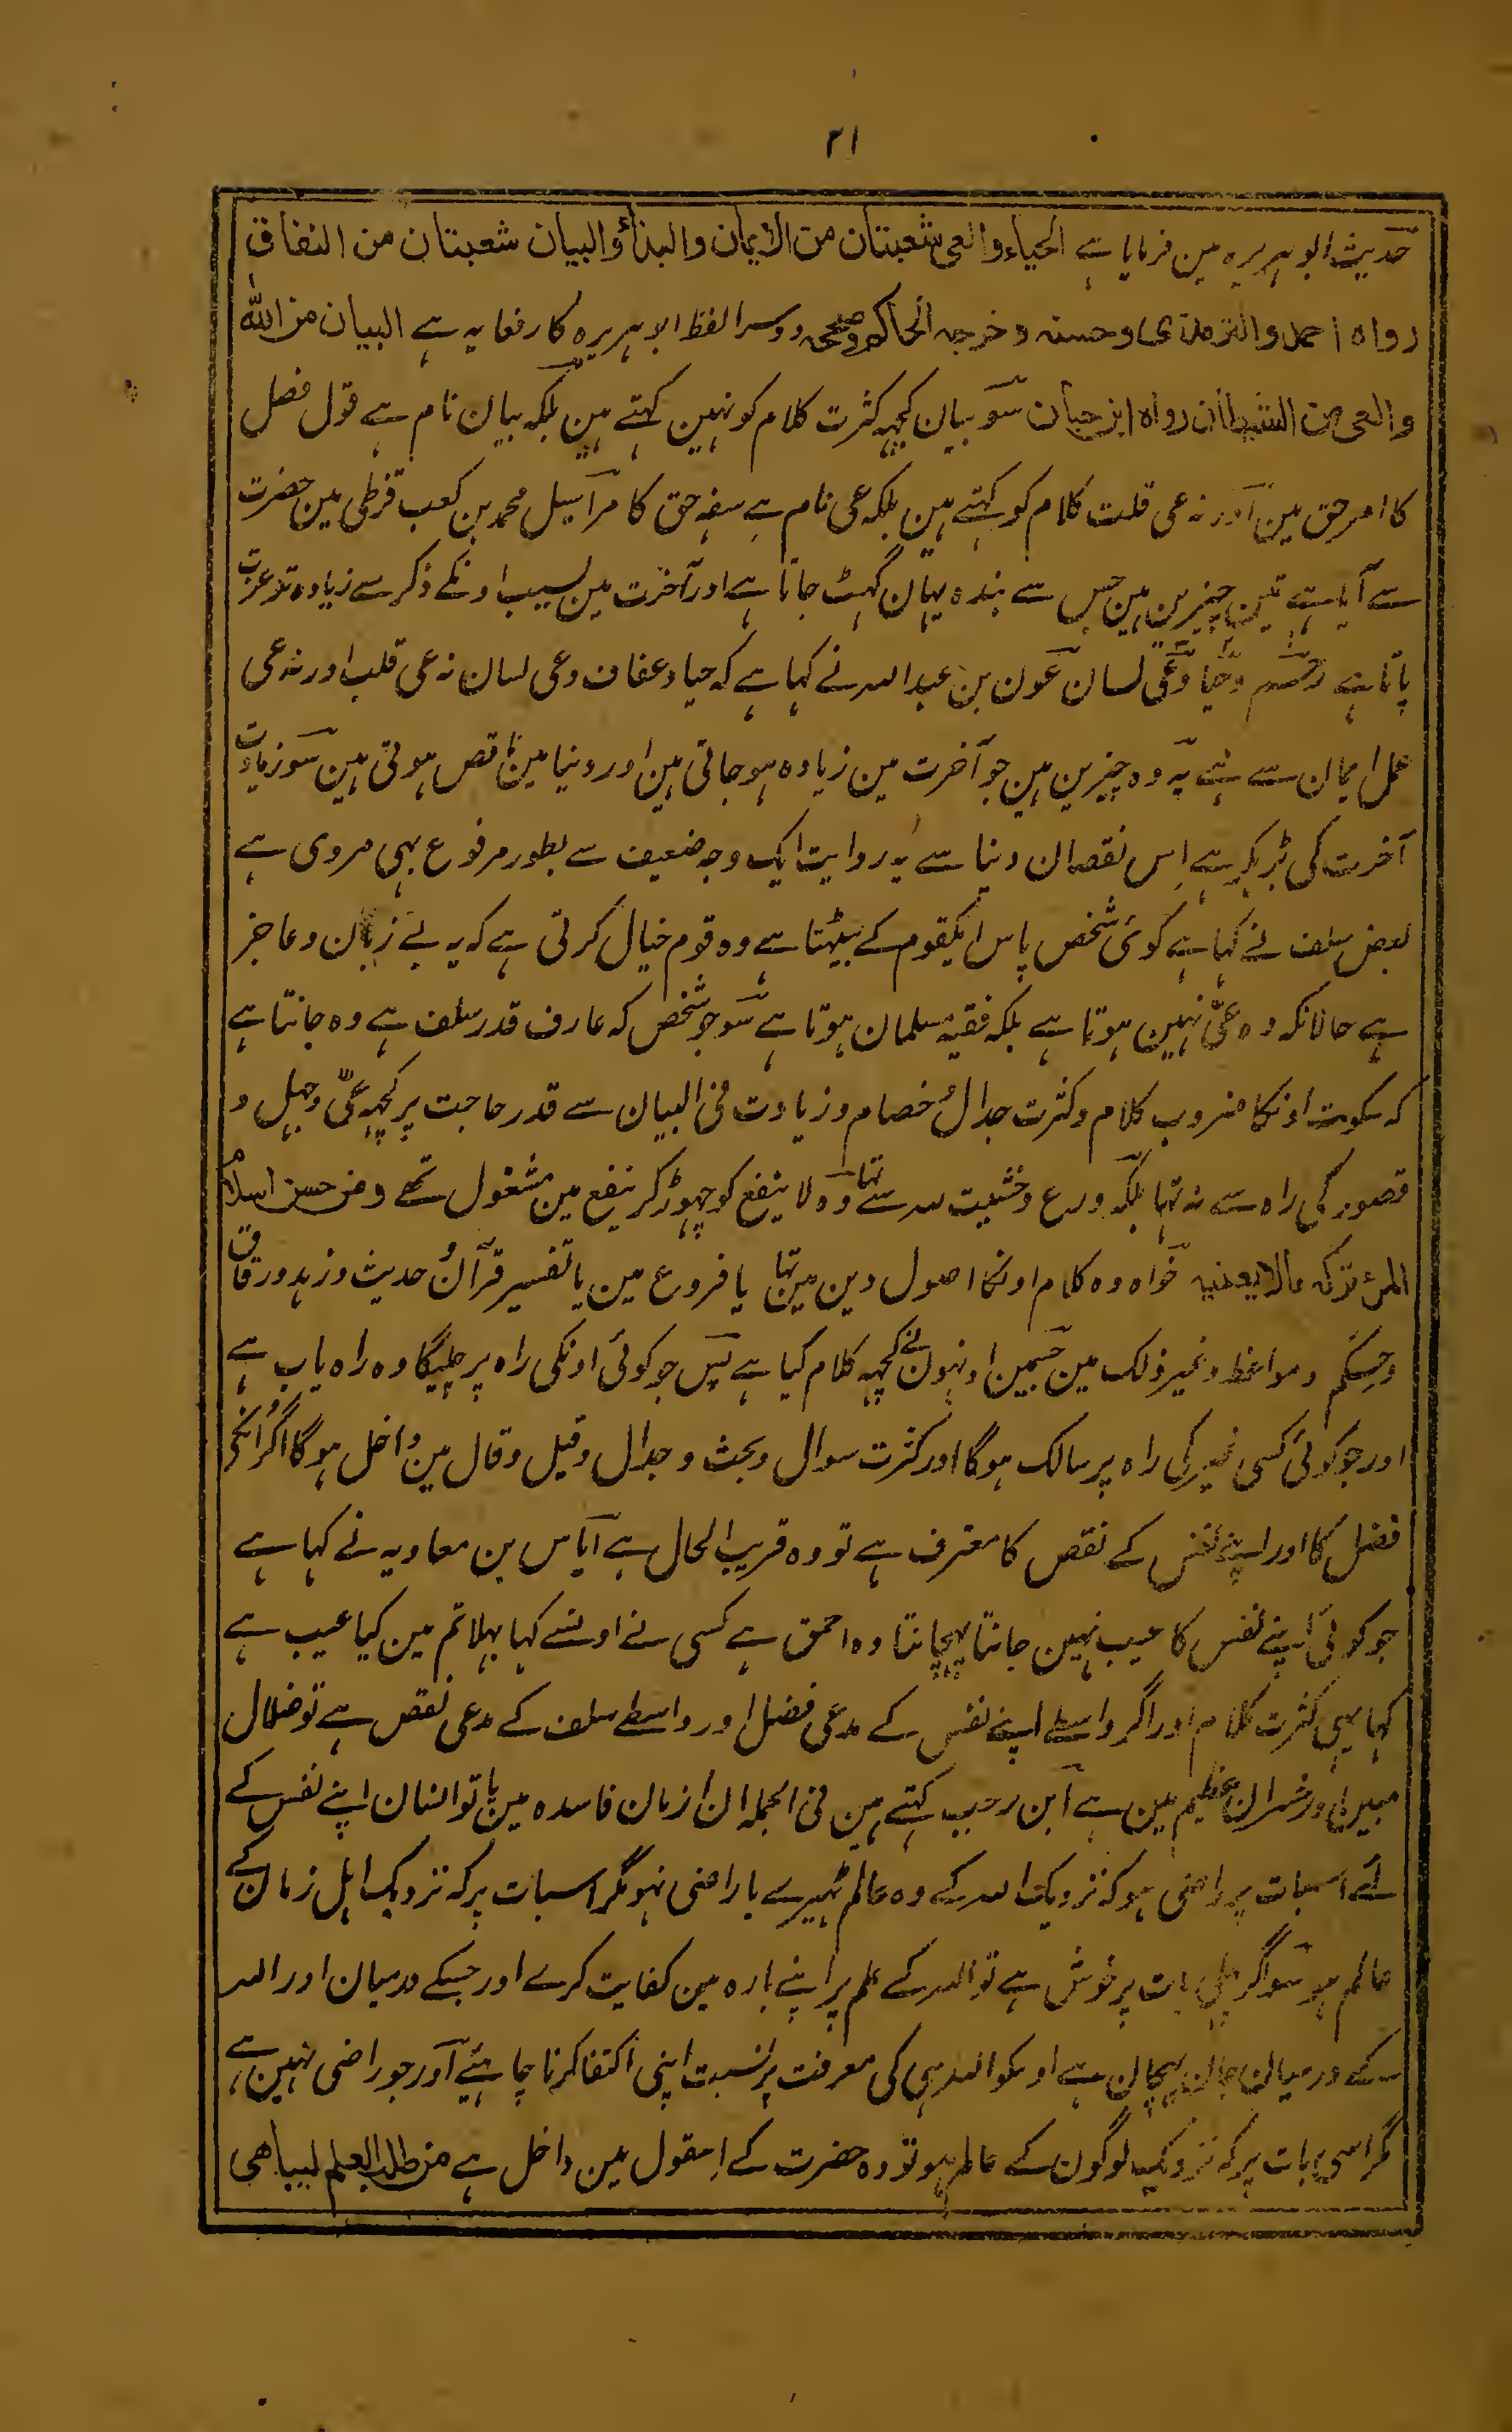 ۲۱
حدیث ابو ہریرہ مین فرمایا ہے الحیاء والعی شعبتان من الایمان والبذاؤ البیان شعبتان من النفاق
رواہ احمد والترمذی وحسنہ وخرجہ الحاکم وصححہ دوسرا لفظ ابو ہریرہ کا رفعا یہ ہے البیان من اللہ
والعی من الشیطان رواہ ابن حبان سو بیان کچہہ کثرت کلام کو نہین کہتے ہین بلکہ بیان نام ہے قول فصل
کا امر حق مین اور نہ عی قلت کلام کو کہتے ہین بلکہ عی نام ہے سفہ حق کا مراسیل محمد بن کعب قرظی مین حضرت
سے آیا ہے تین چیزین ہین جس سے بندہ یہان گہٹ جاتا ہے اور آخرت مین بسبب اونکے ذکر سے زیادہ تر عزت
پاتا ہے رحم وحیا وعی لسان عون بن عبد اللہ نے کہا ہے کہ حیا وعفاف وعی لسان نہ عی قلب اور نہ عی
عمل ایمان سے ہے یہ وہ چیزین ہین جو آخرت مین زیادہ ہو جاتی ہین اور دنیا مین ناقص ہوتی ہین سو زیادت
آخرت کی بڑہکر ہے اس نقصان دنیا سے یہ روایت ایک وجہ ضعیف سے بطور مرفوع بہی مروی ہے
بعض سلف نے کہا ہے کوئی شخص پاس ایکقوم کے بیٹہتا ہے وہ قوم خیال کرتی ہے کہ یہ بے زبان و عاجز
ہے حالانکہ وہ عیّ نہین ہوتا ہے بلکہ فقیہ مسلمان ہوتا ہے سو جو شخص کہ عارف قدر سلف ہے وہ جانتا ہے
کہ سکوت اونکا ضروب کلام وکثرت جدال و خصام و زیادت فی البیان سے قدر حاجت پر کچہہ عیّ و جہل و
قصور کی راہ سے نہ تہا بلکہ ورع وخشیت للہ سے تہا وہ لا ینفع کو چہوڑ کر ینفع مین مشغول تہے ومن حسن اسلام
المرء ترکہ مالا یعنیہ خواہ وہ کلام اونکا اصول دین مین تہا یا فروع مین یا تفسیر قرآن و حدیث و زہد و رقاق
و حِکَم و مواعظ و غیر ذلک مین جسمین اونہون نے کچہہ کلام کیا ہے پس جو کوئی اونکی راہ پر چلیگا وہ راہ یاب ہے
اور جو کوئی کسی غیر کی راہ پر سالک ہوگا اور کثرت سوال و بحث و جدال و قیل و قال مین داخل ہوگا اگر اونکی
فضل کا اور اپنے نفس کے نقص کا معترف ہے تو وہ قریب الحال ہے ایاس بن معاویہ نے کہا ہے
جو کوئی اپنے نفس کا عیب نہین جانتا پہچانتا وہ احمق ہے کسی نے اونسے کہا بہلا تم مین کیا عیب ہے
کہا یہی کثرت کلام اور اگر واسطے اپنے نفس کے مدعی فضل اور واسطے سلف کے مدعی نقص ہے تو ضلال
مبین اور خسران عظیم مین ہے ابن رجب کہتے ہین فی الجملہ ان ازمان فاسدہ مین یا تو انسان اپنے نفس کے
لئے اسبات پر راضی ہو کہ نزدیک اللہ کے وہ عالم ٹہیرے یا راضی نہو مگر اسبات پر کہ نزدیک اہل زمان کے
عالم ہو سو اگر پہلی بات پر خوش ہے تو اللہ کے علم پر اپنے بارہ مین کفایت کرے اور جسکے درمیان اور اللہ
کے درمیان جان پہچان ہے اوسکو اللہ ہی کی معرفت پر نسبت اپنی اکتفا کرنا چاہئیے اور جو راضی نہین ہے
مگر اسی بات پر کہ نزدیک لوگون کے عالم ہو تو وہ حضرت کے اسقول مین داخل ہے من طلب العلم لیباھی